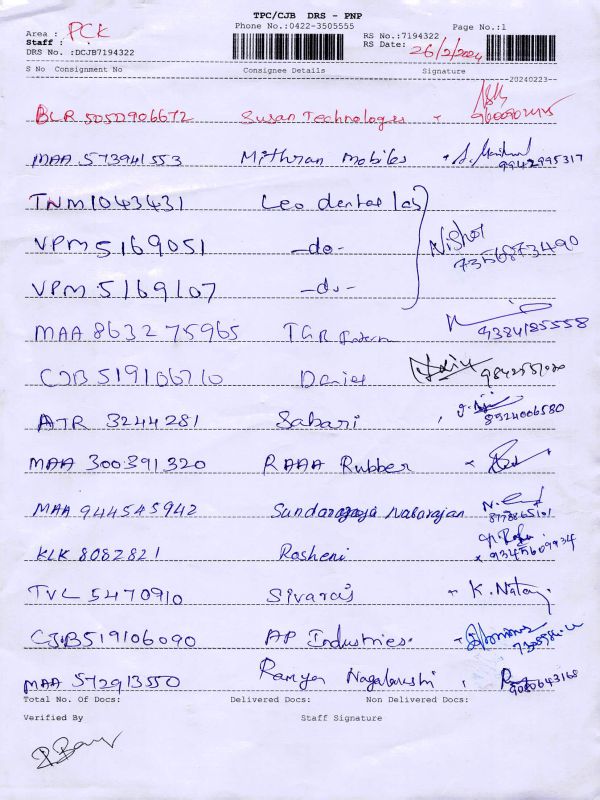 TPC/CJB DRS - PNP
Phone No.:0422-3505555 Page No.:1
Area : PCK RS No.:7194322
Staff : RS Date: 26/2/2024
DRS No. :DCJB7194322
S No Consignment No Consignee Details Signature
20240223
BLR 5050906672 Susan Technologies
MAA 573941553 Mithran mobiles 9942995317
TNM1043431 Leo dental lab
VPM 5169051 -do- Nishol 7356873490
VPM 5169107 -do-
MAA 863275965 TGR 9384185558
CJB 519106710 Daniel
ATR 3244281 Sabari 8924006580
MAA 300391320 RAAA Rubber
MAA 944545942 Natarajan
KLK 8082821 Rosheni 9345609934
TVL 5470910 Sivaraj K. Nataraj
CJB519106090 AP Industries.
MAA 572913550 Ramya 9080643168
Total No. Of Docs: Delivered Docs: Non Delivered Docs:
Verified By Staff Signature